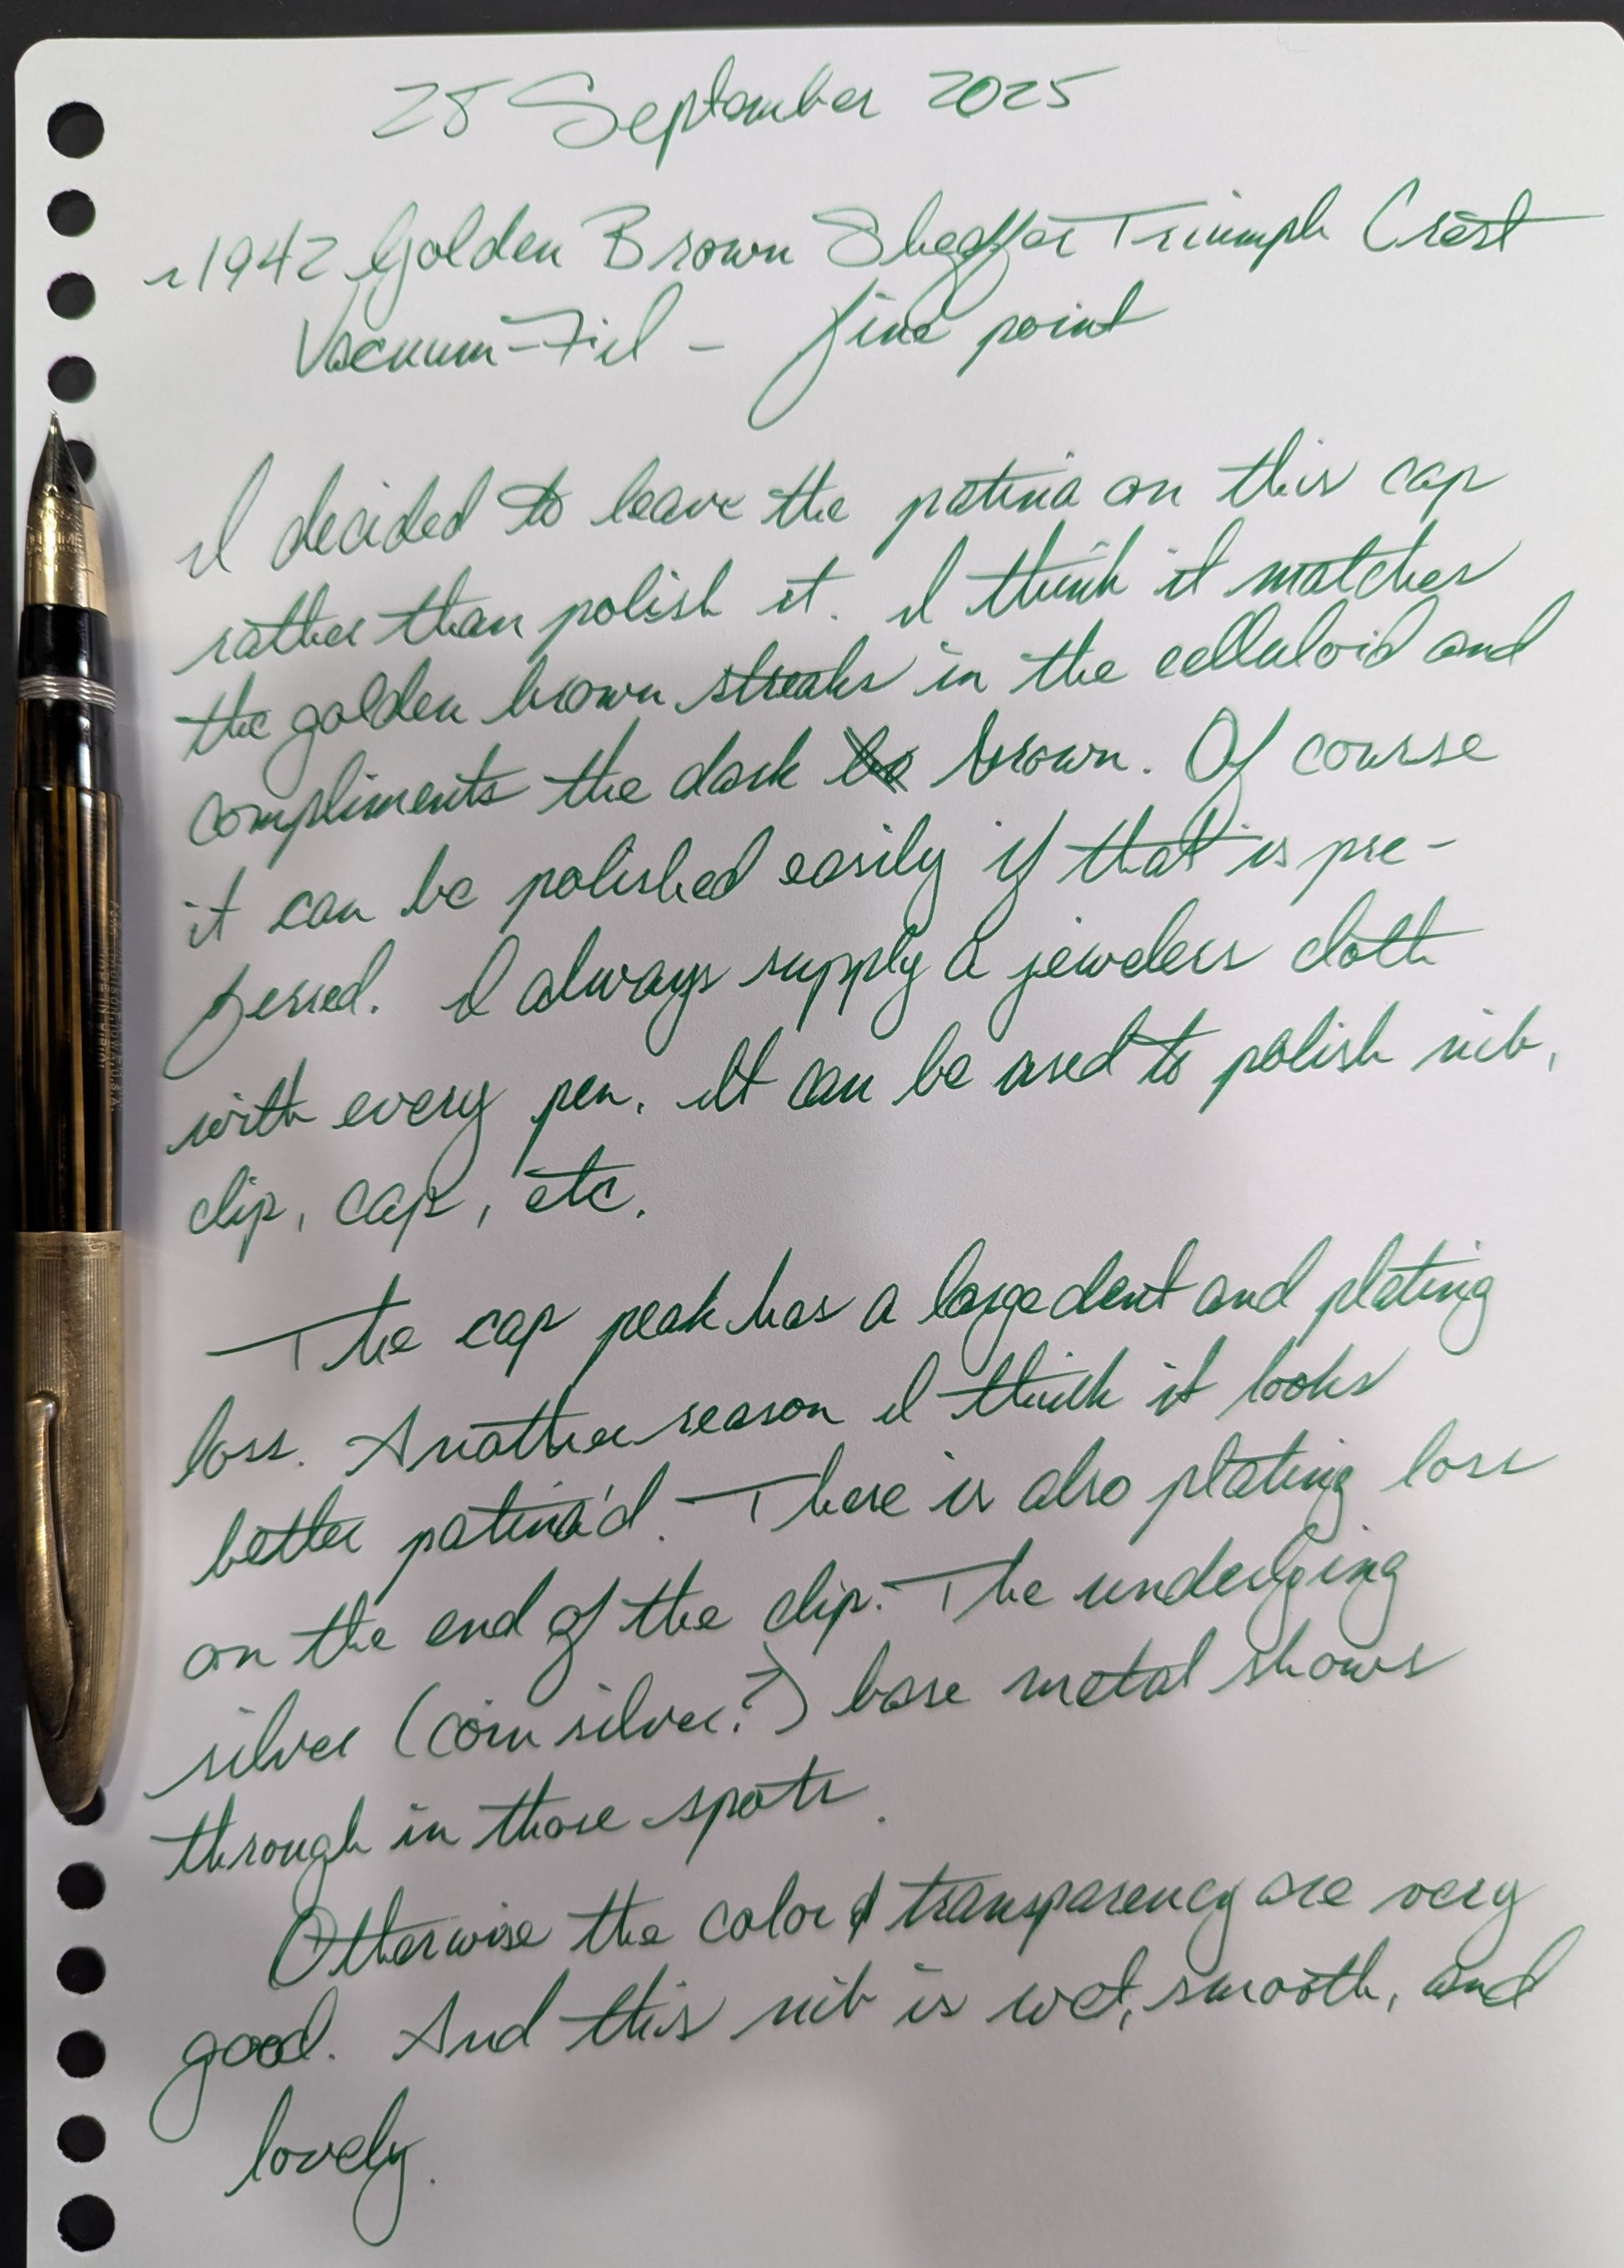 28 September 2025
~1942 Golden Brown Sheaffer Triumph Crest
Vacuum-Fil - fine point
I decided to leave the patina on this cap
rather than polish it. I think it matches
the golden brown streaks in the celluloid and
compliments the dark brown. Of course
it can be polished easily if that is pre-
ferred. I always supply a jewelers cloth
with every pen. It can be used to polish nib,
clip, cap, etc.
The cap peak has a large dent and plating
loss. Another reason I think it looks
better patina'd. There is also plating loss
on the end of the clip. The underlying
silver (coin silver?) base metal shows
through in those spots.
Otherwise the color & transparency are very
good. And this nib is wet, smooth, and
lovely.